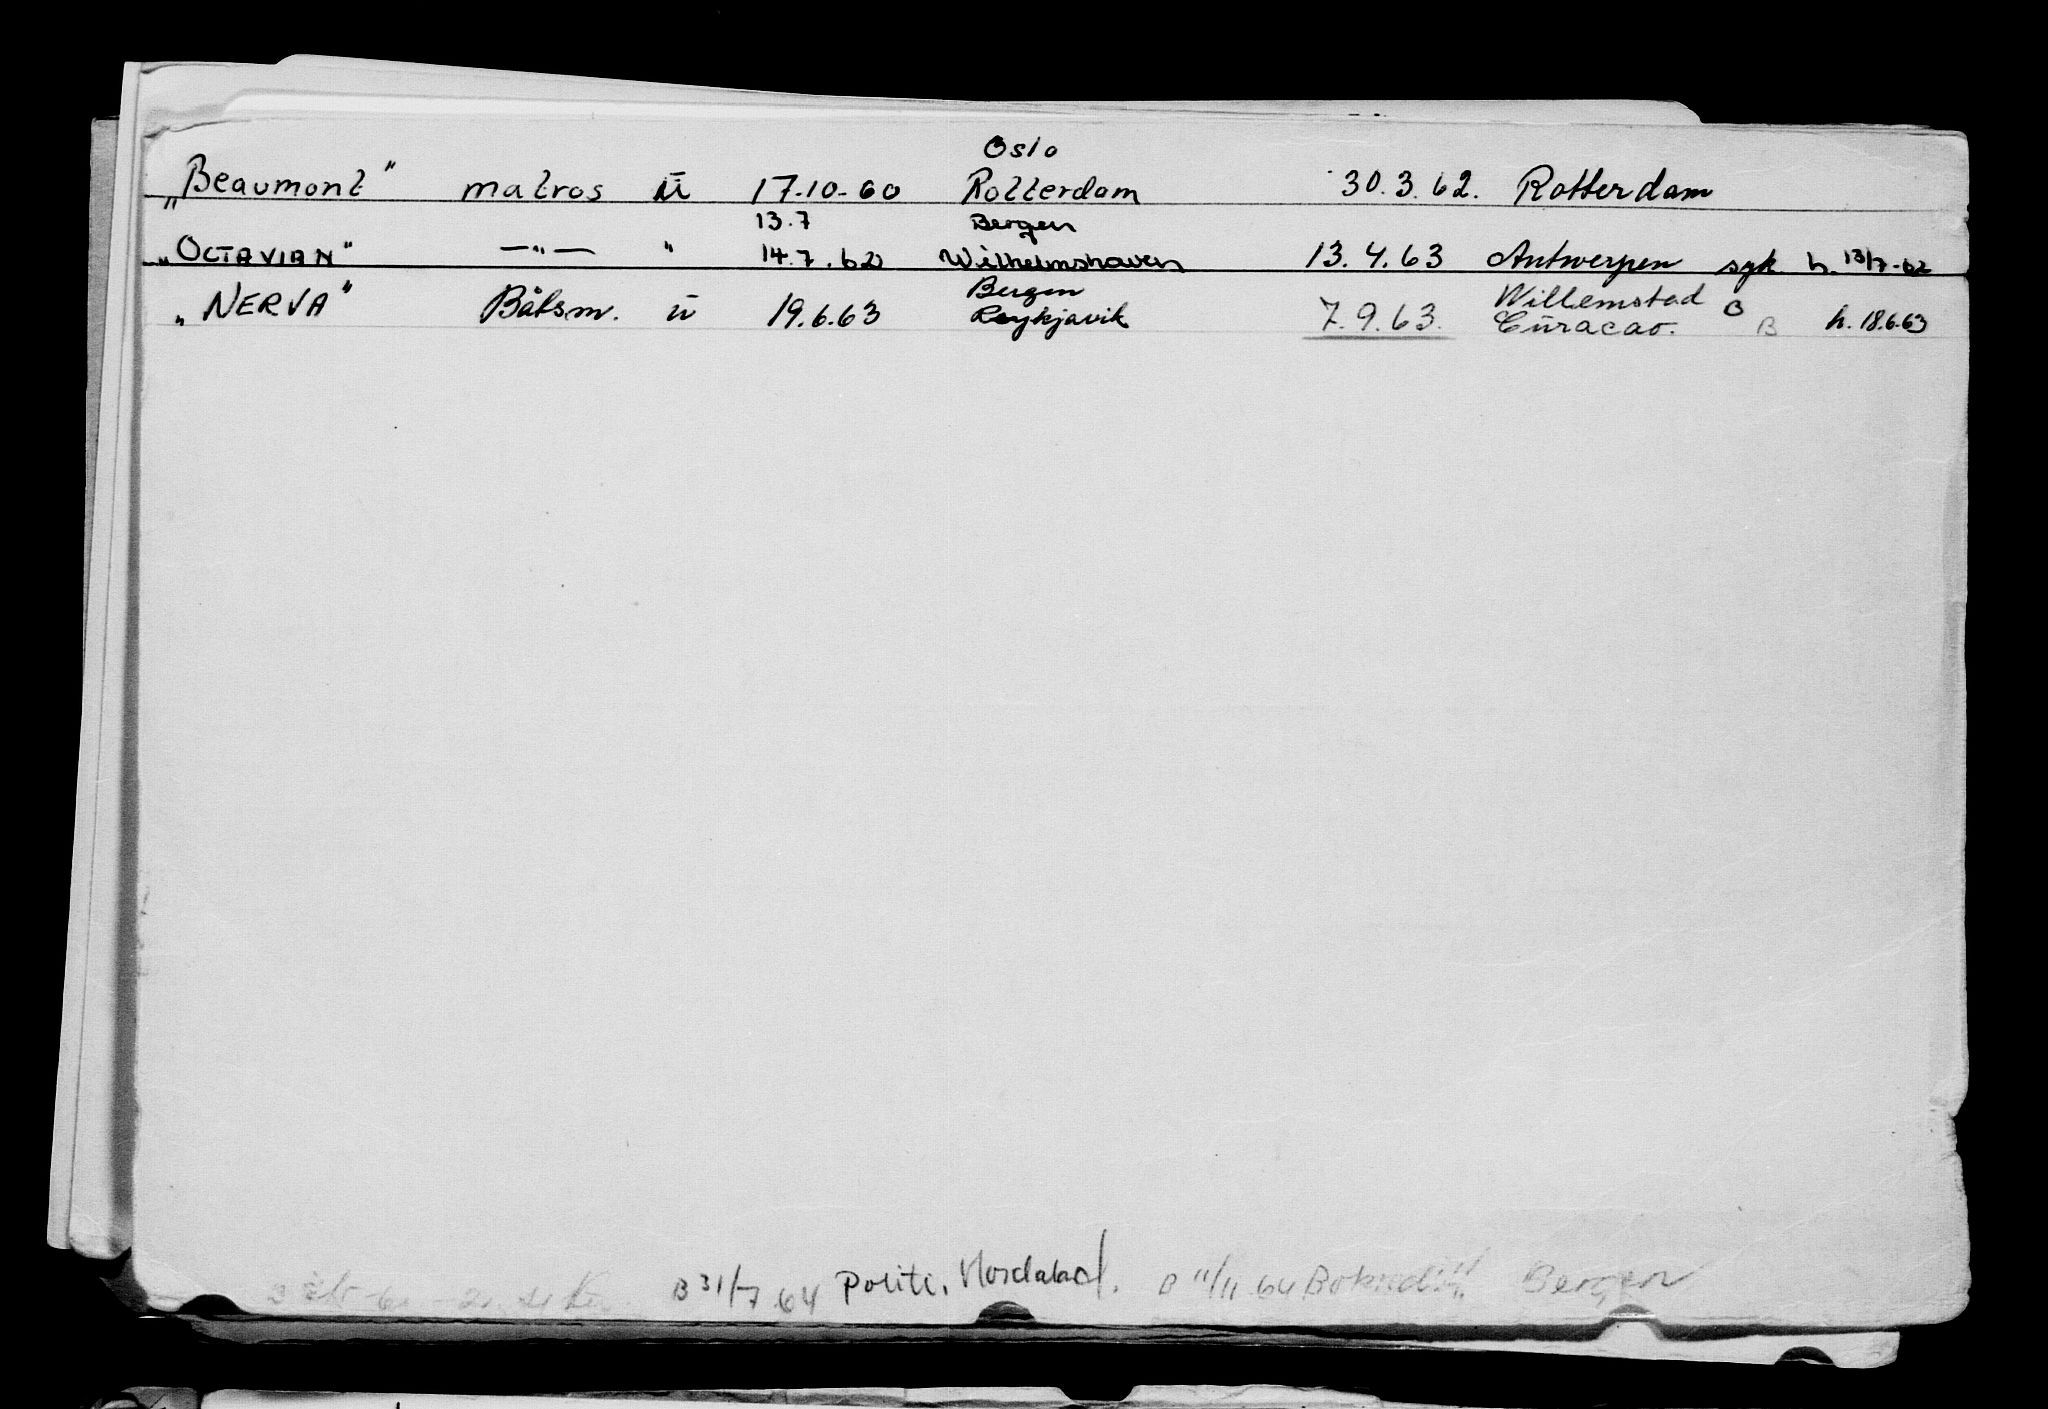 Oslo
„Beaumont" matros ū 17-10-60 Rotterdam 30.3.62. Rotterdam
13.7 Bergen
„OCTAVIAN" —"— " 14.7.62 Wilhelmshaven 13.4.63 Antwerpen syk h. 13/7-62
Bergen Willemstad B
„NERVA" Båtsm. ū 19.6.63 Reykjavik 7.9.63. Curacao. B h. 18.6.63
B 31/7 64 Politi, Hordaland. B 11/11 64 Bergen